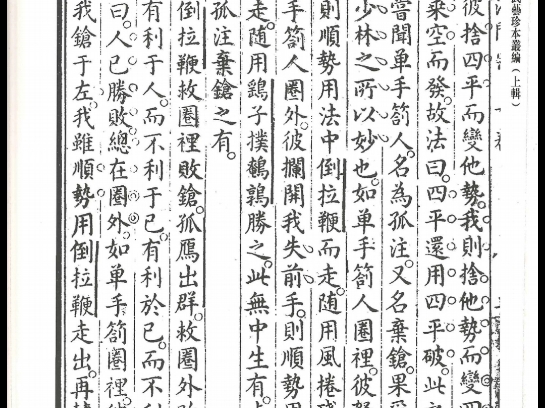 藝珍本叢編（上輯）
彼捨四平而變他勢我則捨他勢而變四
乘空而發故法曰四平還用四平破此
嘗聞单手劄人名為孤注又名棄鎗果
少林之所以妙也如单手劄人圈裡彼
則順勢用法中倒拉鞭而走随用風捲
手劄人圈外彼攔開我失前手則順勢用
走随用鷄子撲鵪鶉勝之此無中生有
孤注棄鎗之有
倒拉鞭救圈裡敗鎗孤鴈出群救圈外
有利于人而不利于己有利於己而不利
曰人已勝敗總在圈外如单手劄圈裡
我鎗于左我雖順勢用倒拉鞭走出再